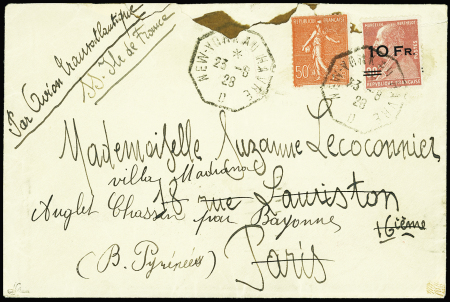 Par Avion Transatlantique
SS. Ile de France
NEW-YORK AU HAVRE
23-8
28
D
50c
10 FR.
REPUBLIQUE FRANCAISE
NEW-YORK AU HAVRE
23-8
28
D
Mademoiselle Suzanne Lecoconnier
villa Madiana
18 rue Lauriston
Anglet Chassin par Bayonne
16ième
(B. Pyrénées)
Paris